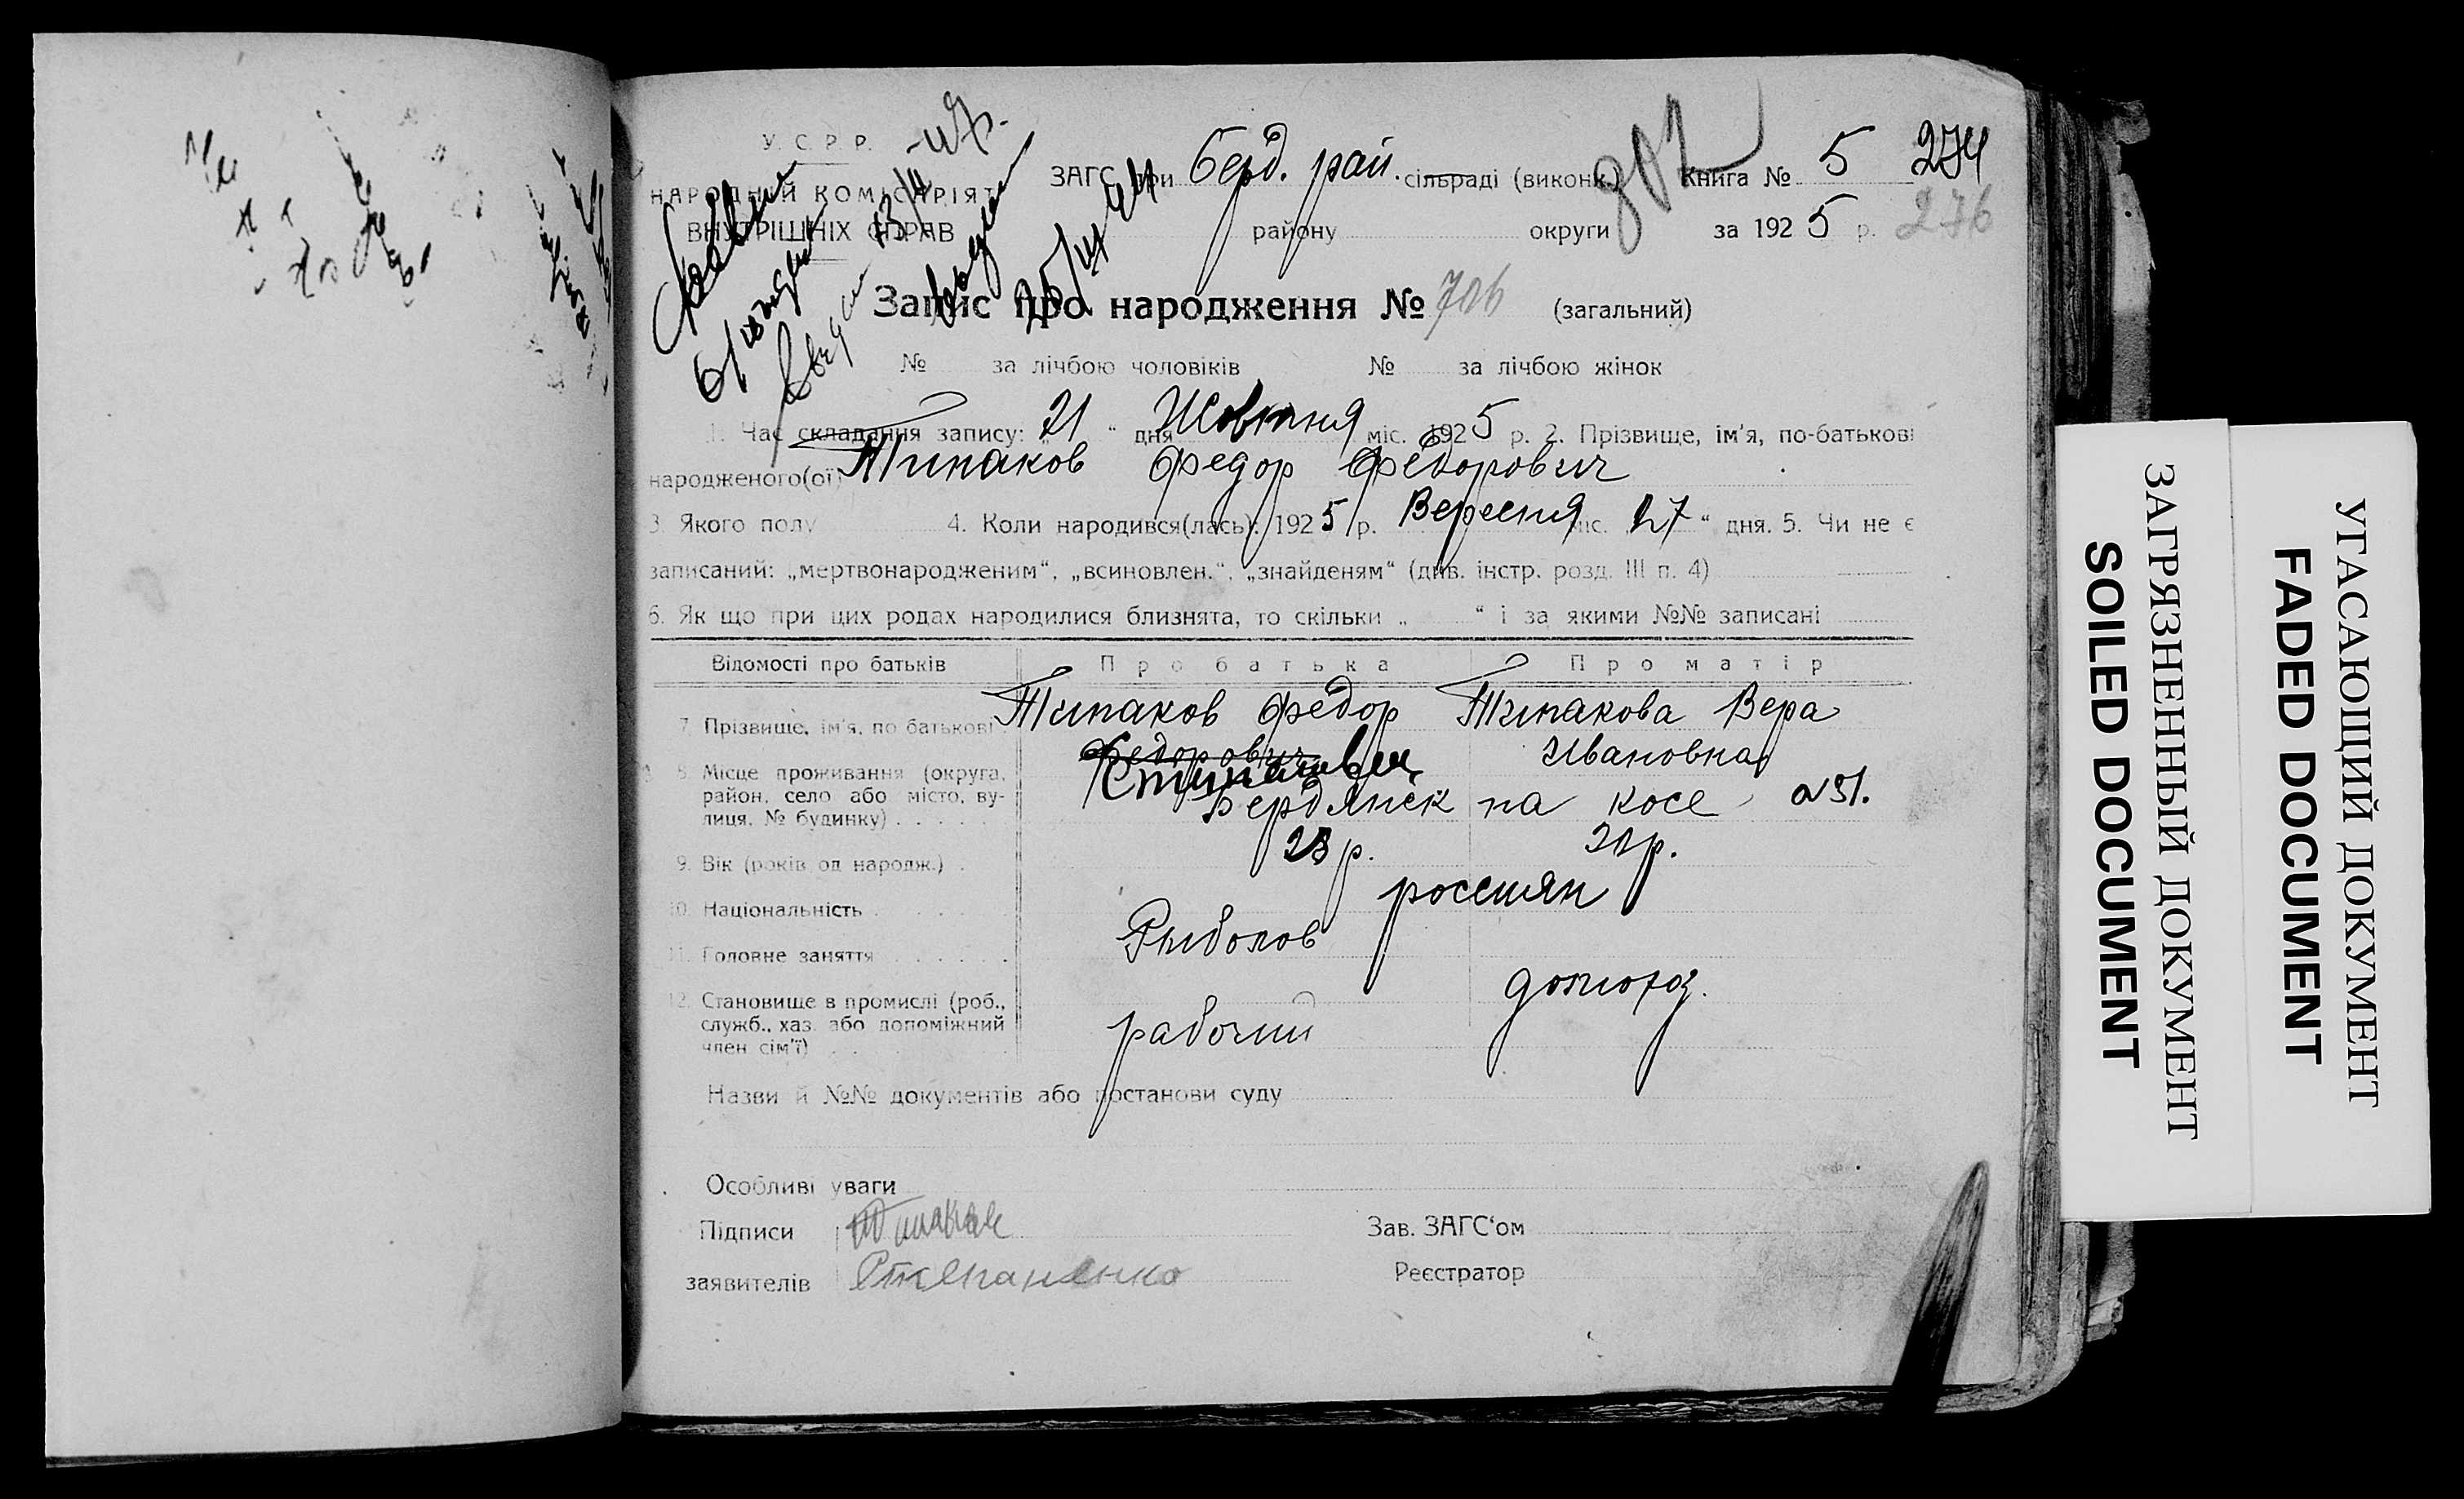 У. С. Р. Р.
НАРОДНІЙ КОМІСАРІЯТ
ВНУТРІШНІХ СПРАВ
ЗАГС при Берд. рай. сільраді (виконк.) Книга № 5 274
району округи за 1925 р. 276
Запис про народження № 706 (загальний)
№ за лічбою чоловіків № за лічбою жінок
1. Час складання запису: „21“ дня Жовтня міс. 1925 р. 2. Прізвище, ім'я, по-батькові
народженого(ої) Типаков Федор Федорович
3. Якого полу 4. Коли народився(лась): 1925 р. Вересня міс. 27“ дня. 5. Чи не є
записаний: „мертвонародженим“, „всиновлен.“, „знайденям“ (див. інстр. розд. III п. 4)
6. Як що при цих родах народилися близнята, то скільки „ “ і за якими №№ записані
Відомості про батьків Про батька Про матір
7. Прізвище, ім'я, по батькові Типаков Федор Типакова Вера
Федорович Ивановна
8. Місце проживання (округа,
район, село або місто, ву-
лиця, № будинку) Бердянск на косе №51.
9. Вік (років од народж.) 23 р. 20 р.
10. Національність россиян
11. Головне заняття Рыболов
домохоз.
12. Становище в промислі (роб.,
служб., хаз. або допоміжний
член сім'ї) рабочий
Назви й №№ документів або постанови суду
Особливі уваги
Підписи Зав. ЗАГС'ом
заявителів Степаненко Реєстратор
ЗАГРЯЗНЕННЫЙ ДОКУМЕНТ
SOILED DOCUMENT
УГАСАЮЩИЙ ДОКУМЕНТ
FADED DOCUMENT